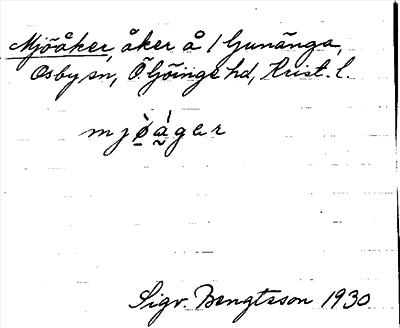 Mjöåker, åker å 1 Gunänga,
Osby sn, Ö Göinge hd, Krist. l.
mjø̀ágar
Sigv. Bengtsson 1930